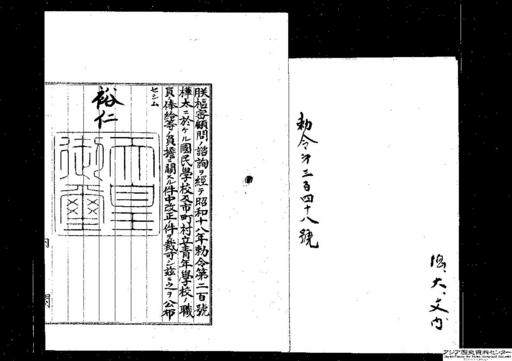 勅令第三百四十八號
朕樞密顧問ノ諮詢ヲ經テ昭和十八年勅令第二百號
樺太ニ於ケル國民學校及市町村立青年學校ノ職
員俸給等ノ負擔ニ關スル件中改正ノ件ヲ裁可シ玆ニ之ヲ公布
セシム
裕仁
天皇御璽
内閣
アジア歴史資料センター